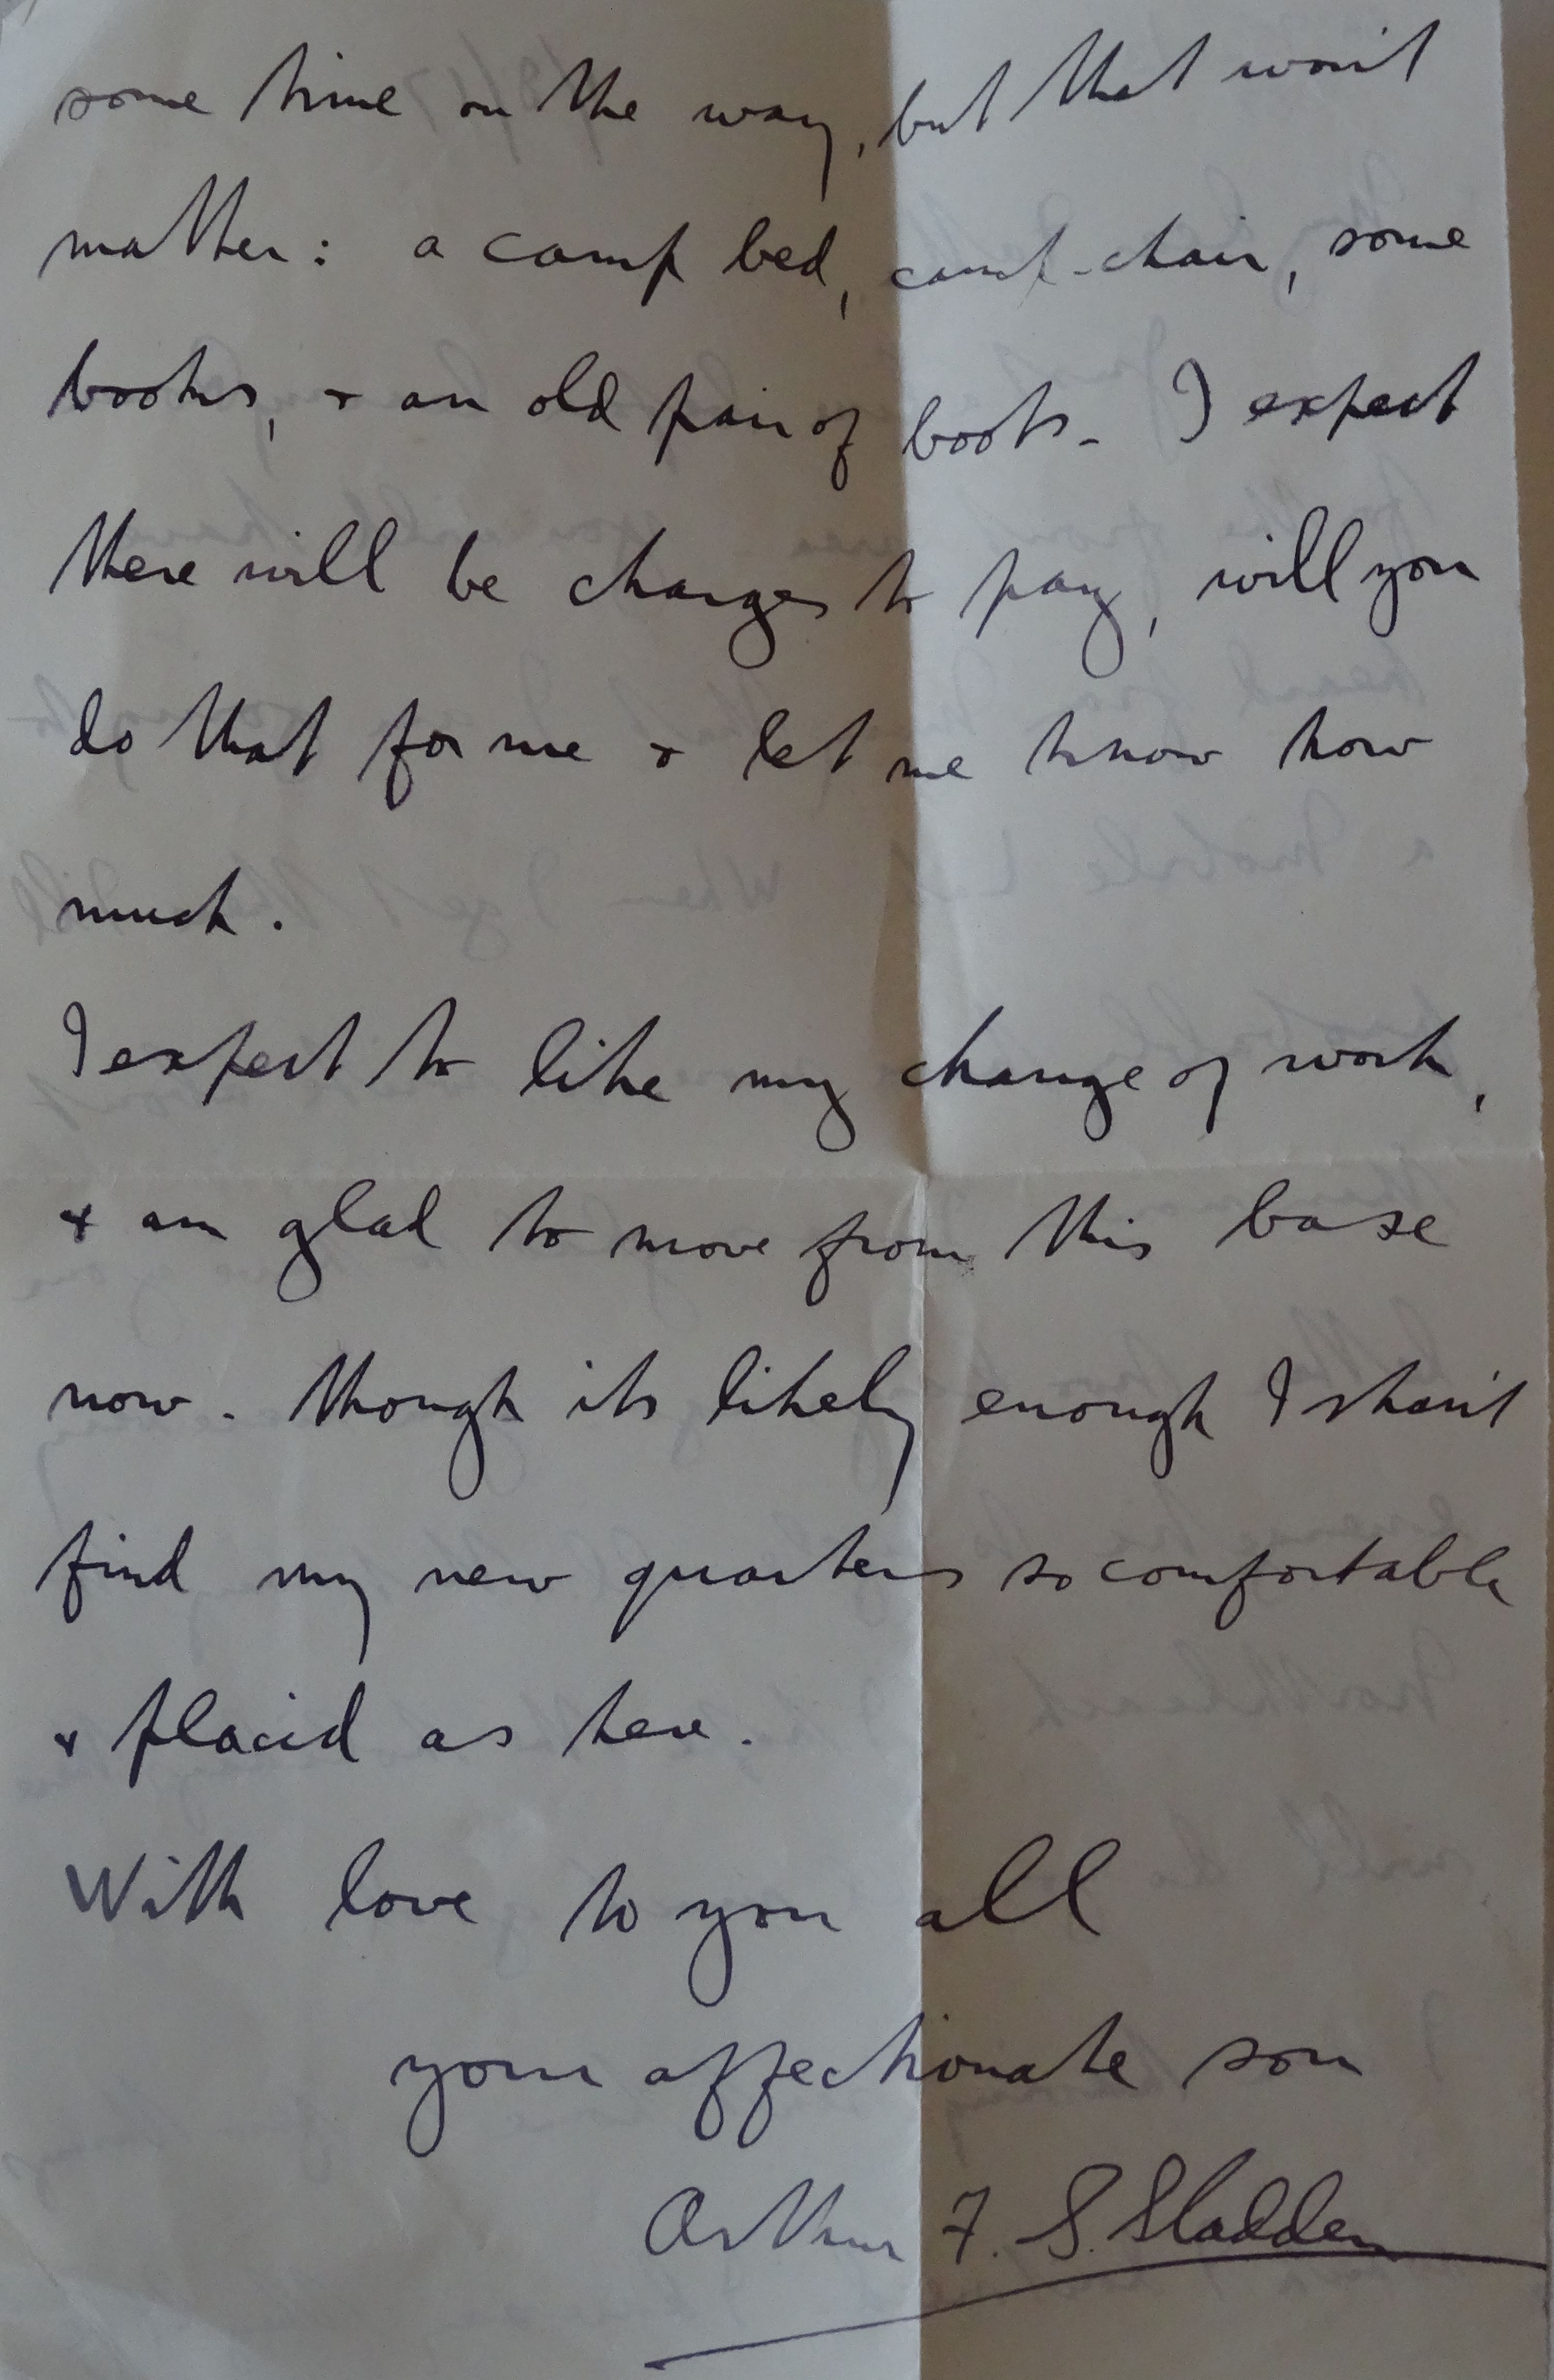 some time on the way, but that won't
matter: a camp bed, camp-chair, some
books, & an old pair of boots. I expect
there will be charges to pay, will you
do that for me & let me know how
much.
I expect to like my change of work,
& am glad to move from this base
now. Though its likely enough I shan't
find my new quarters so comfortable
& placid as here.
With love to you all
your affectionate son
Arthur F. S. Sladden